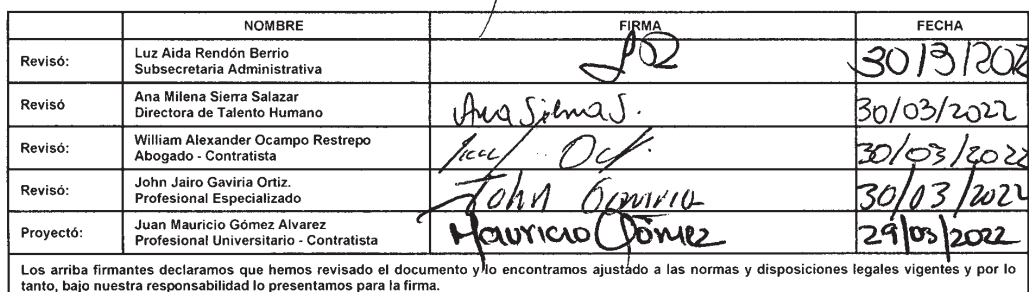 NOMBRE FIRMA FECHA
Revisó: Luz Aida Rendón Berrio
Subsecretaria Administrativa
30/3/202
Revisó Ana Milena Sierra Salazar
Directora de Talento Humano
Ana Silena S. 30/03/2022
Revisó: William Alexander Ocampo Restrepo
Abogado - Contratista
30/03/2022
Revisó: John Jairo Gaviria Ortiz.
Profesional Especializado
John Gaviria 30/03/2022
Proyectó: Juan Mauricio Gómez Alvarez
Profesional Universitario - Contratista
Mauricio Gómez 29/03/2022
Los arriba firmantes declaramos que hemos revisado el documento y lo encontramos ajustado a las normas y disposiciones legales vigentes y por lo
tanto, bajo nuestra responsabilidad lo presentamos para la firma.